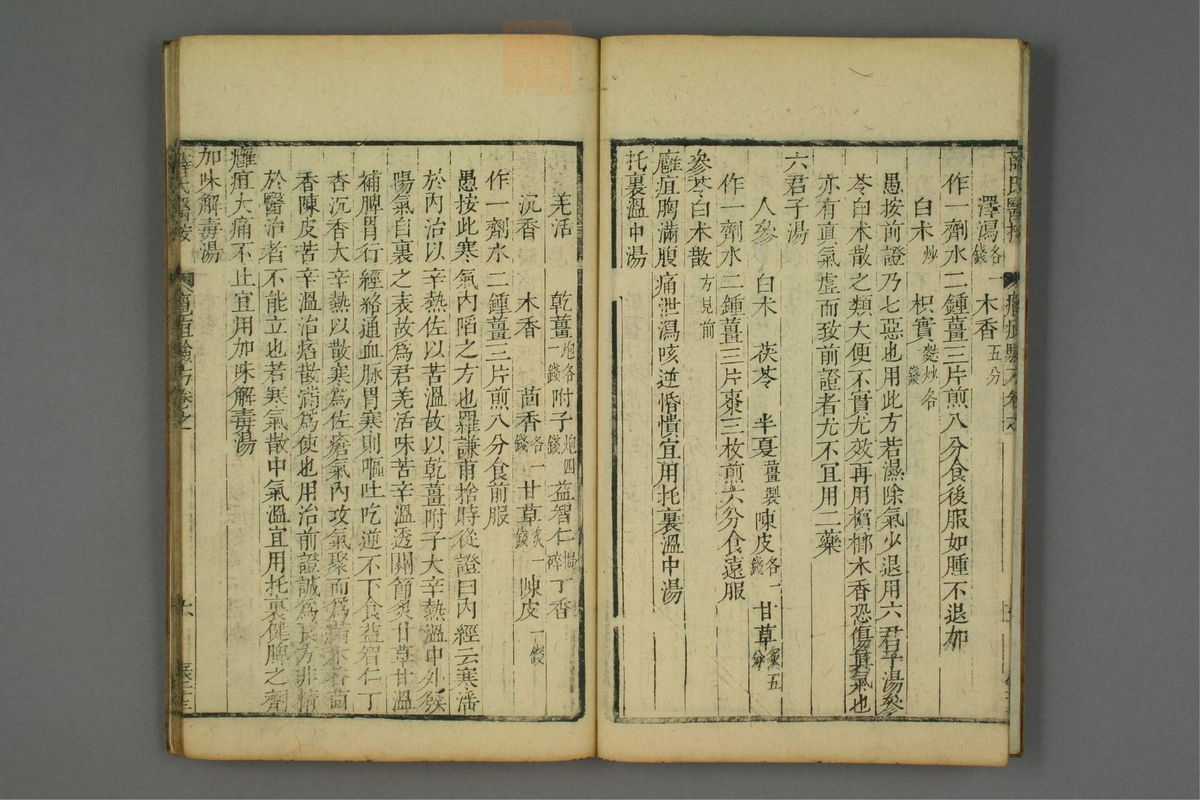 澤瀉各錢 木香五分
作一劑水二鍾薑三片煎八分食後服如腫不退加
白朮炒 枳實麩炒各錢
愚按前證乃七惡也用此方若濕除氣少退用六君子湯參
苓白朮散之類大便不實尤效再用檳榔木香恐傷真氣也
亦有真氣虛而致前證者尤不宜用二藥
六君子湯
人參 白朮 茯苓 半夏薑製 陳皮各一錢 甘草炙五分
作一劑水二鍾薑三片棗三枚煎六分食遠服
參苓白朮散方見前
癰疽胸滿腹痛泄瀉咳逆惛憒宜用托裏溫中湯
托裏溫中湯
羌活 乾薑炮各一錢 附子炮四錢 益智仁搗碎 丁香
沉香 木香 茴香各一錢 甘草炙一錢 陳皮一錢
作一劑水二鍾薑三片煎八分食前服
愚按此寒氣內陷之方也羅謙甫捨時從證曰內經云寒滛
於內治以辛熱佐以苦溫故以乾薑附子大辛熱溫中外發
陽氣自裏之表故為君羌活味苦辛溫透關節炙甘草甘溫
補脾胃行經絡通血脉胃寒則嘔吐吃逆不下食益智仁丁
香沉香大辛熱以散寒為佐瘡氣內攻氣聚而為滿木香茴
香陳皮苦辛溫治痞散滿為使也用治前證誠為良方非精
於醫治者不能立也若寒氣散中氣溫宜用托裏健脾之劑
癰疽大痛不止宜用加味解毒湯
加味解毒湯
薛氏醫按 癰疽驗方卷之一